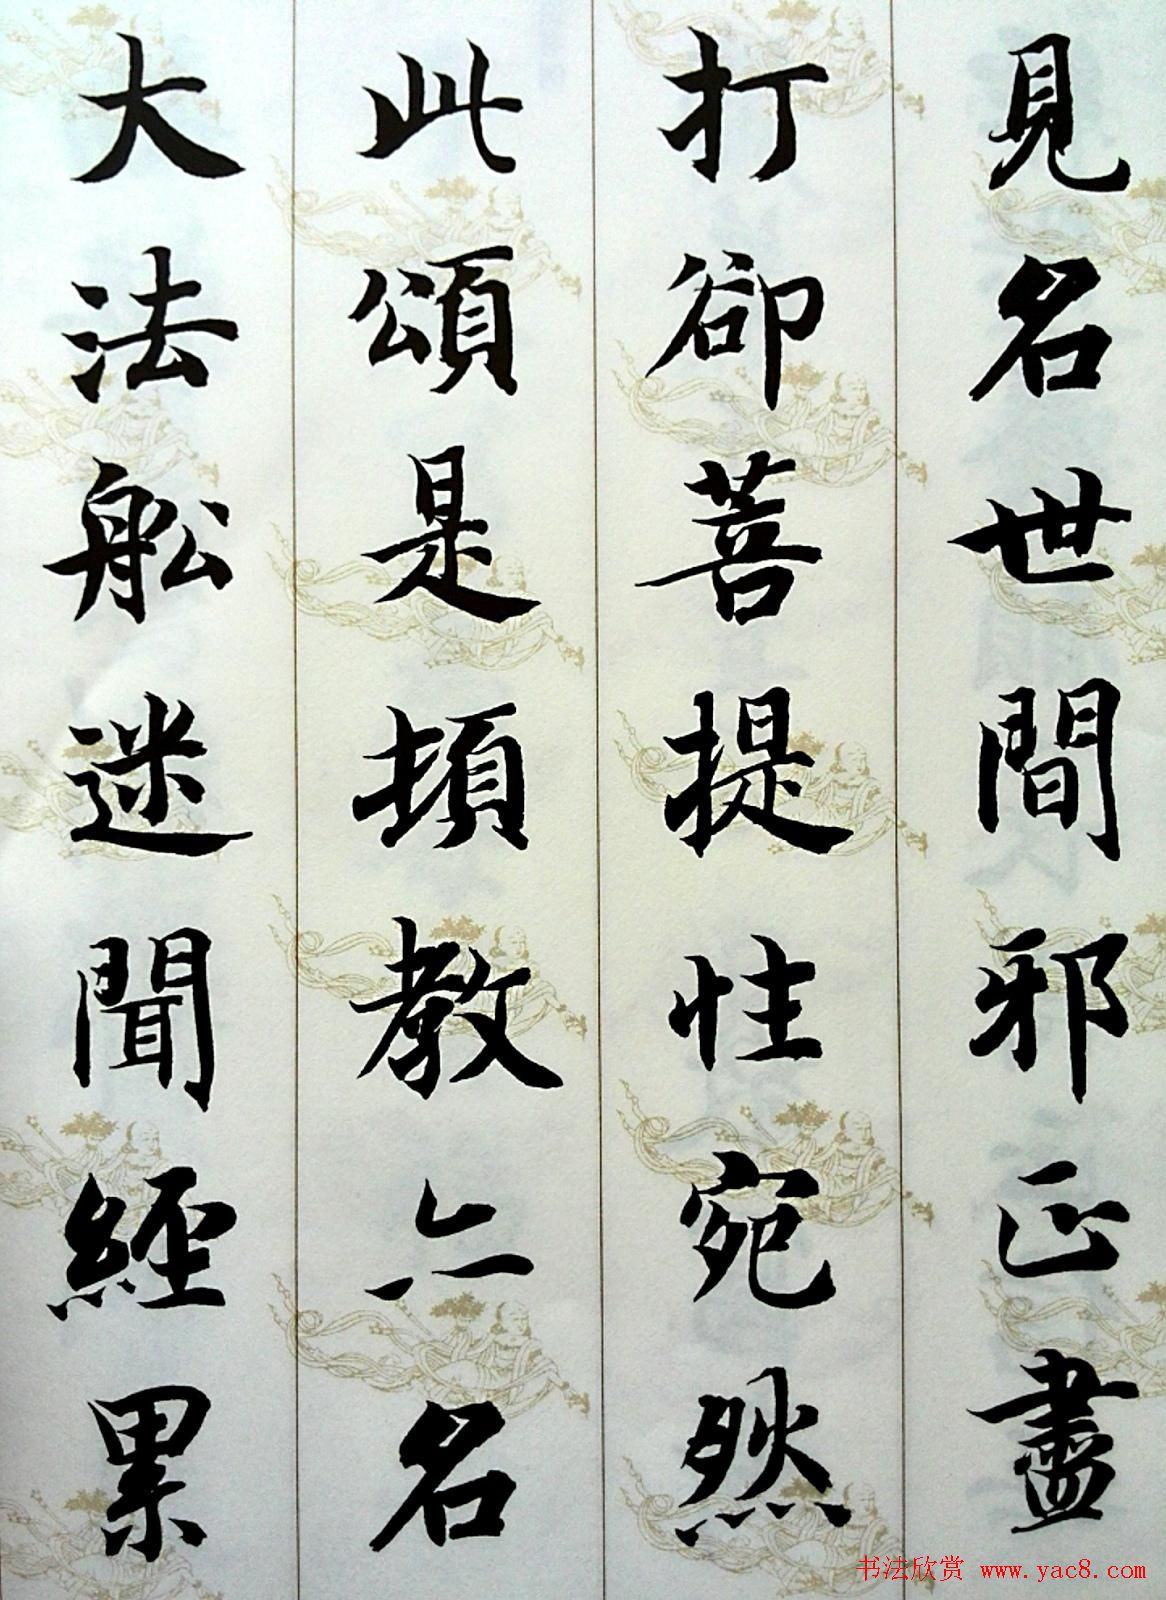 見名世間邪正盡
打卻菩提性宛然
此頌是頓教亦名
大法船迷聞經累
书法欣赏 www.yac8.com